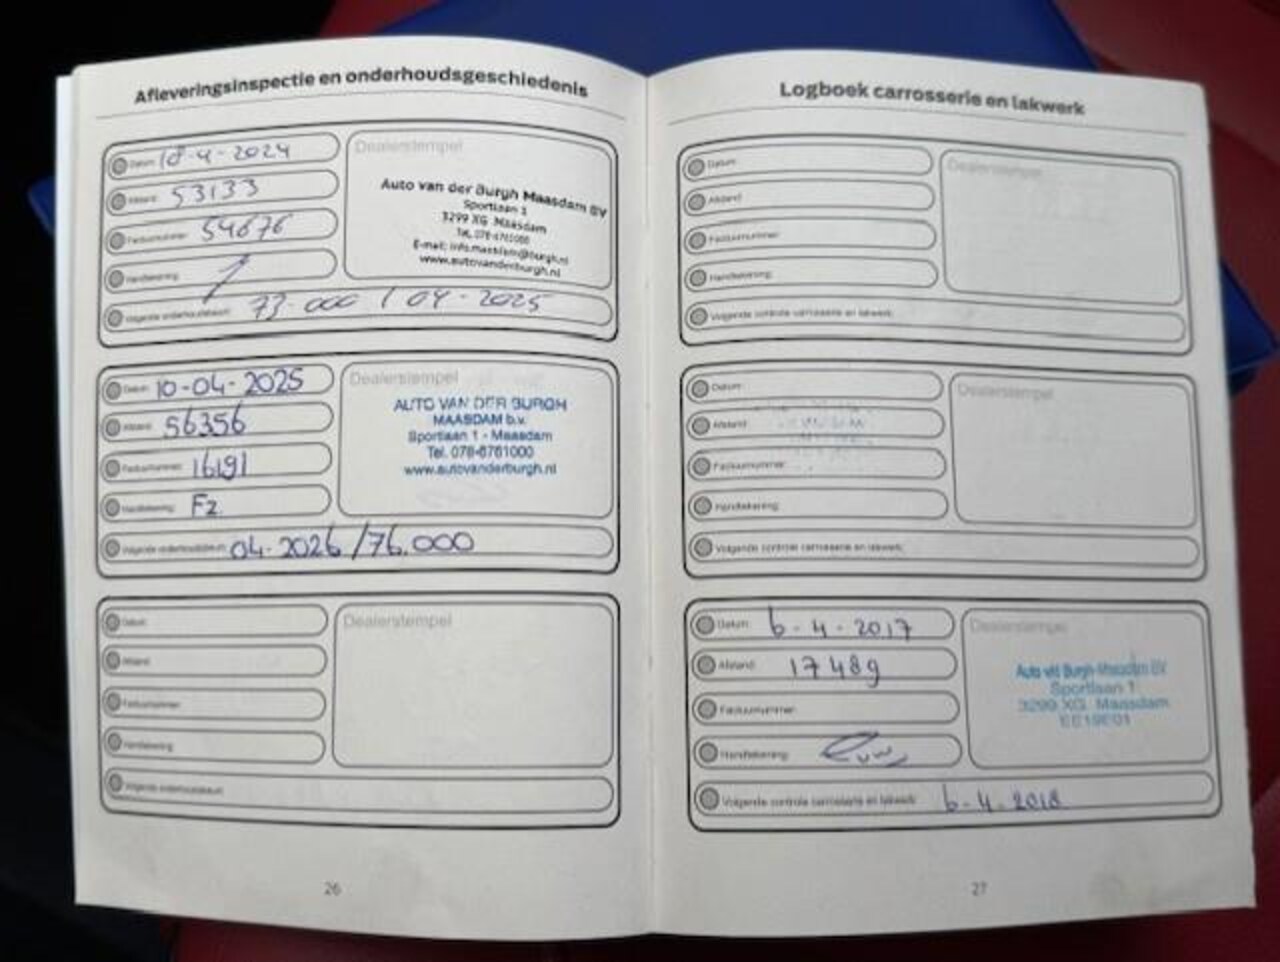 Afleveringsinspectie en onderhoudsgeschiedenis
Datum: 18-4-2024
Afstand: 53133
Factuurnummer: 54676
Handtekening:
Volgende onderhoudsbeurt: 73.000 / 04-2025
Dealerstempel
Auto van der Burgh Maasdam BV
Sportlaan 1
3299 XG Maasdam
Tel. 078-6761000
E-mail: info.maasdam@burgh.nl
www.autovanderburgh.nl
Datum: 10-04-2025
Afstand: 56356
Factuurnummer: 16191
Handtekening: Fz
Volgende onderhoudsbeurt: 04-2026/76.000
Dealerstempel
AUTO VAN DER BURGH
MAASDAM b.v.
Sportlaan 1 - Maasdam
Tel. 078-6761000
www.autovanderburgh.nl
Datum:
Afstand:
Factuurnummer:
Handtekening:
Volgende onderhoudsbeurt:
Dealerstempel
26
Logboek carrosserie en lakwerk
Datum:
Afstand:
Factuurnummer:
Handtekening:
Volgende controle carrosserie en lakwerk:
Dealerstempel
Datum:
Afstand:
Factuurnummer:
Handtekening:
Volgende controle carrosserie en lakwerk:
Dealerstempel
Datum: 6-4-2017
Afstand: 17489
Factuurnummer:
Handtekening:
Volgende controle carrosserie en lakwerk: 6-4-2018
Dealerstempel
Auto vd Burgh-Maasdam BV
Sportlaan 1
3299 XG Maasdam
EE19E01
27